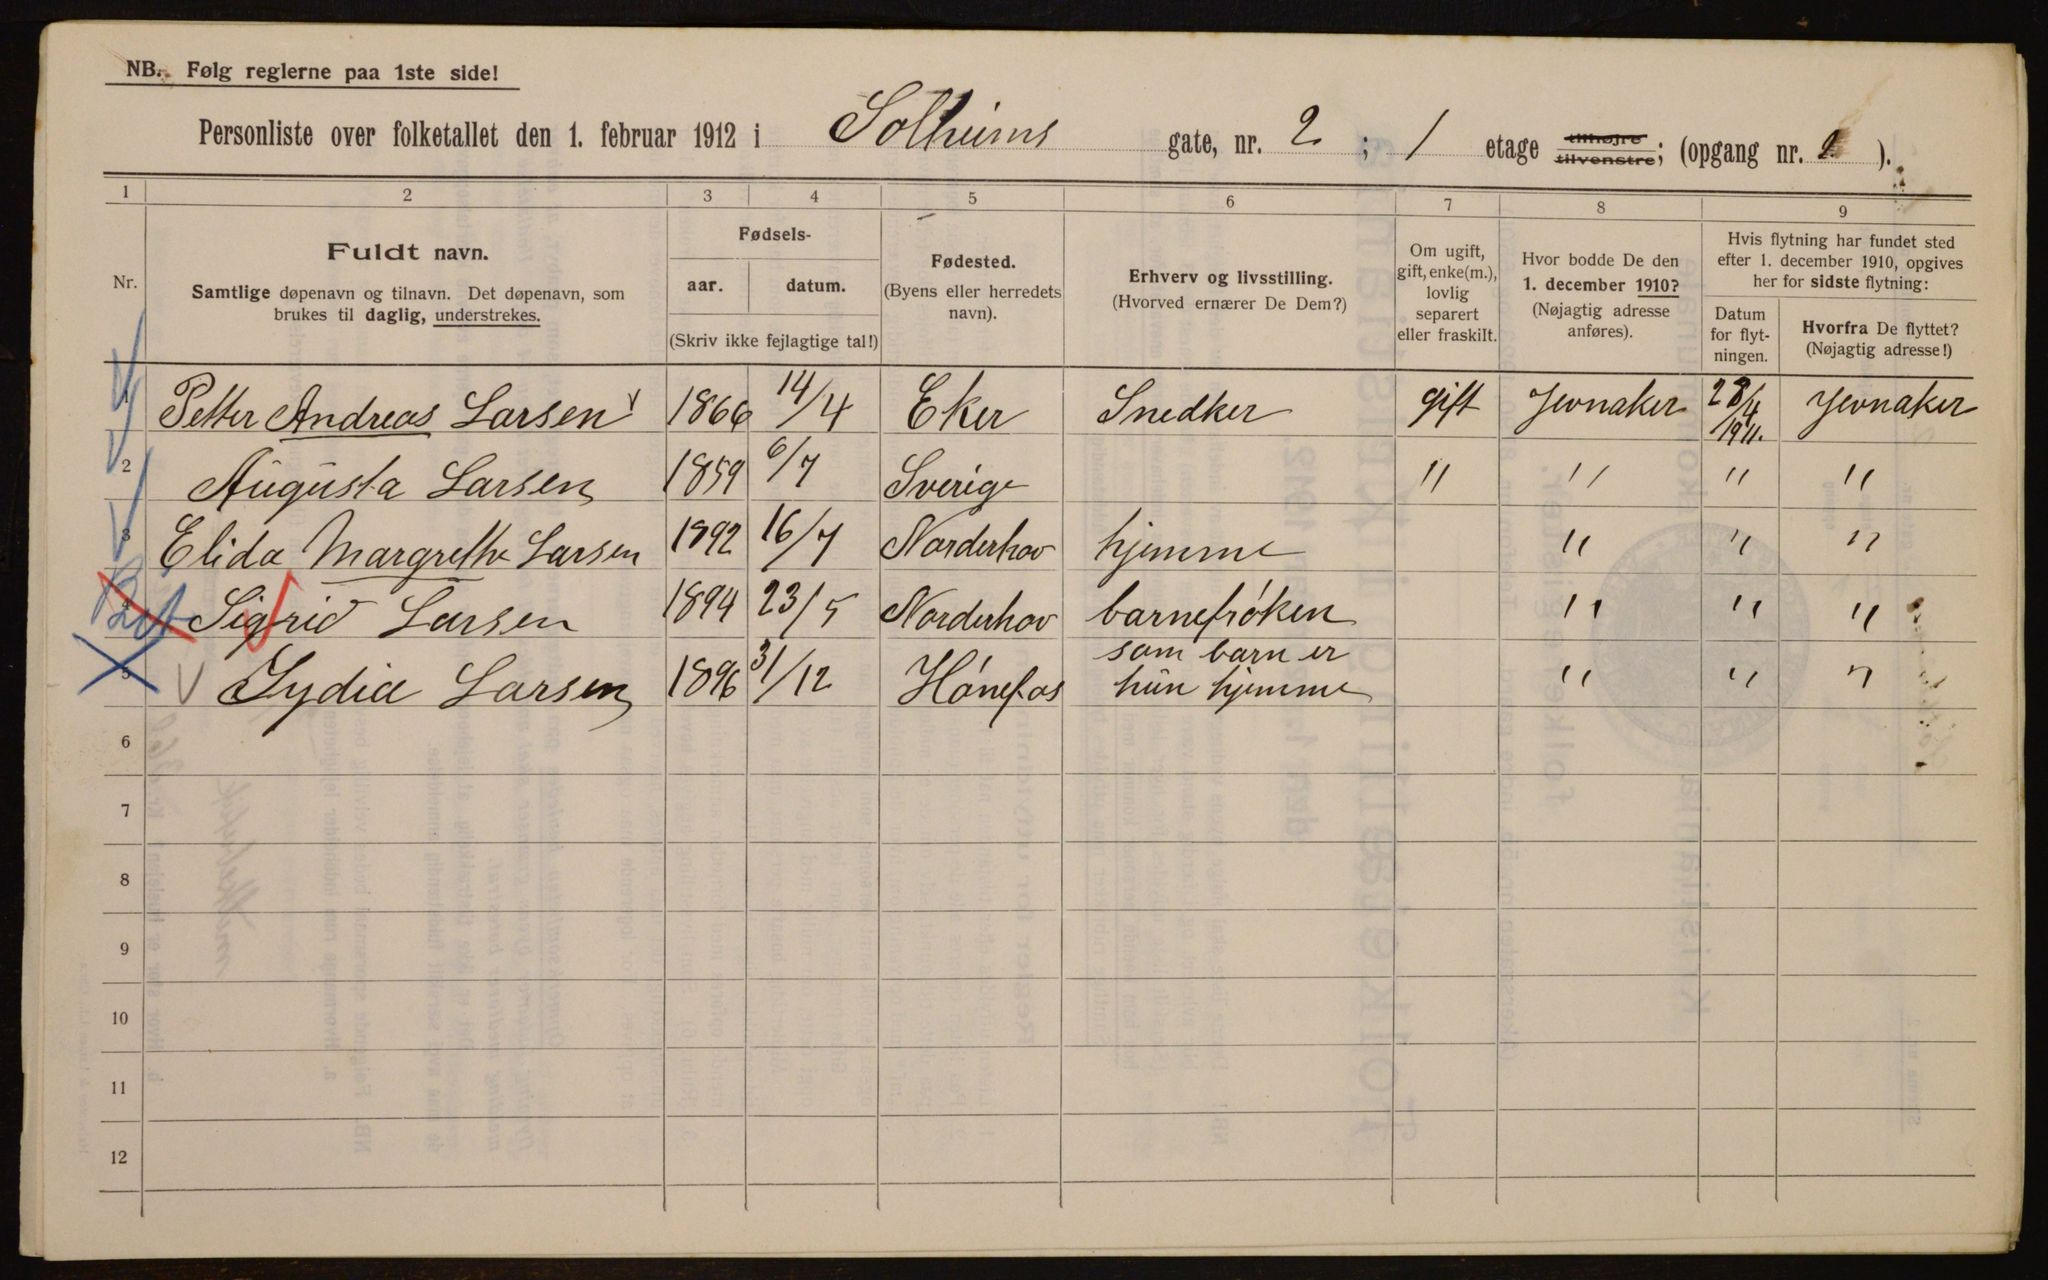 NB. Følg reglerne paa 1ste side!
Personliste over folketallet den 1. februar 1912 i Solheims gate, nr. 2 ; 1 etage tilhøjre tilvenstre; (opgang nr. 2 ).
1 2 3 4 5 6 7 8 9
Nr.
Fuldt navn.
Samtlige døpenavn og tilnavn. Det døpenavn, som
brukes til daglig, understrekes.
Fødsels-
aar. datum.
(Skriv ikke fejlagtige tal!)
Fødested.
(Byens eller herredets
navn).
Erhverv og livsstilling.
(Hvorved ernærer De Dem?)
Om ugift,
gift, enke(m.),
lovlig
separert
eller fraskilt.
Hvor bodde De den
1. december 1910?
(Nøjagtig adresse
anføres).
Hvis flytning har fundet sted
efter 1. december 1910, opgives
her for sidste flytning:
Datum
for flyt-
ningen.
Hvorfra De flyttet?
(Nøjagtig adresse!)
1 Petter Andreas Larsen 1866 14/4 Eker Snedker gift Jevnaker 28/4 1911. Jevnaker
2 Augusta Larsen 1859 6/7 Sverige " " " "
3 Elida Margrethe Larsen 1892 16/7 Norderhov hjemme " " "
4 Sigrid Larsen 1894 23/5 Norderhov barnefrøken " " "
5 Lydia Larsen 1896 31/12 Hønefos som barn er
hun hjemme " " "
6
7
8
9
10
11
12